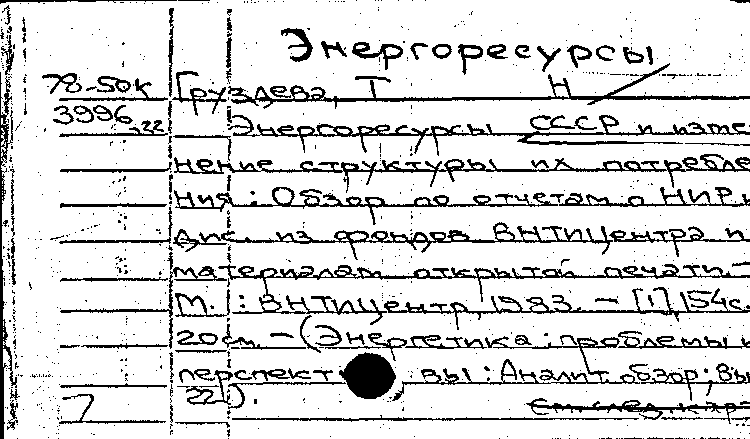 Энергоресурсы
78-50к Груздева, Т Н
3996,22 Энергоресурсы СССР и изме
нение структуры их потребле
ния: Обзор по отчетам о НИР и
дис. из фондов ВНТИЦентра и
материалам открытой печати. -
М.: ВНТИЦентр, 1983. - [1], 154с.
20см. - (Энергетика: проблемы и
перспект вы: Аналит. обзор; Вы
22).